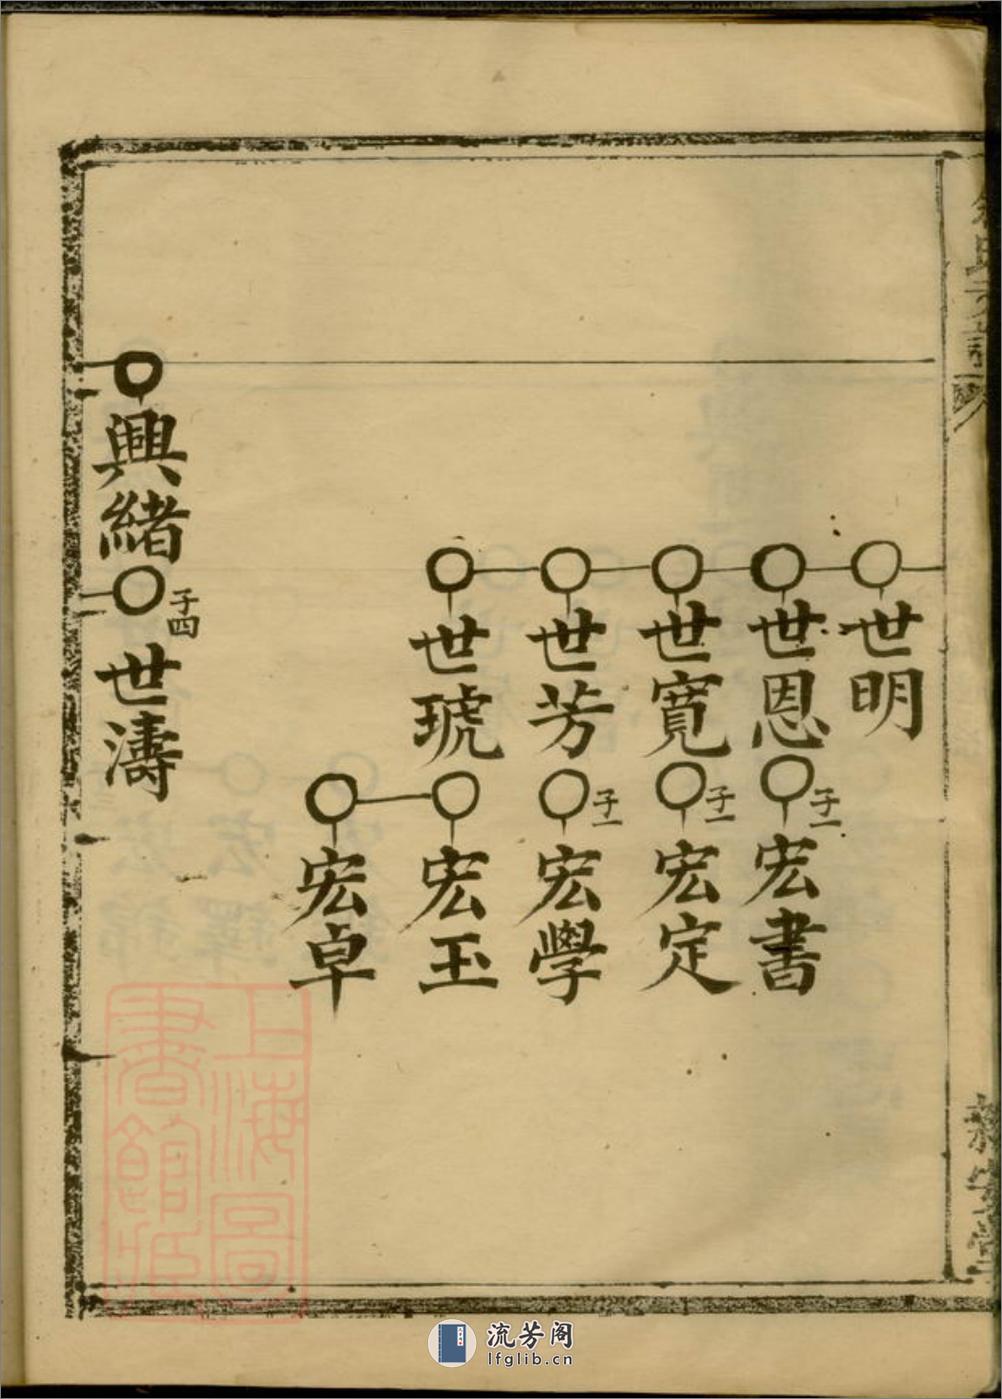 世明
世恩
子一
宏書
世寬
子一
宏定
世芳
子一
宏學
世琥
宏玉
宏卓
興緒
子四
世濤
上海圖
書館藏
流芳阁
lfglib.cn